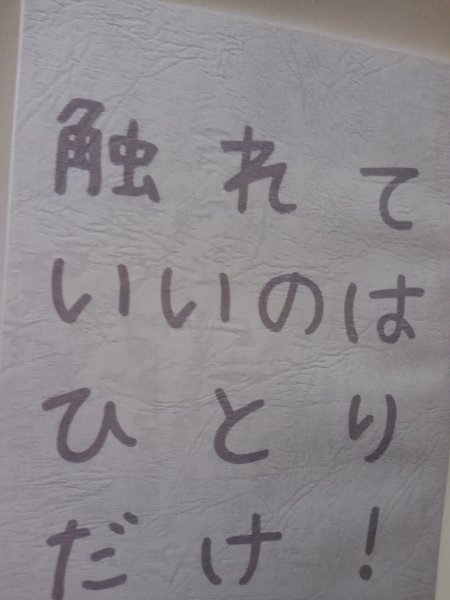 触れて
いいのは
ひとり
だけ!